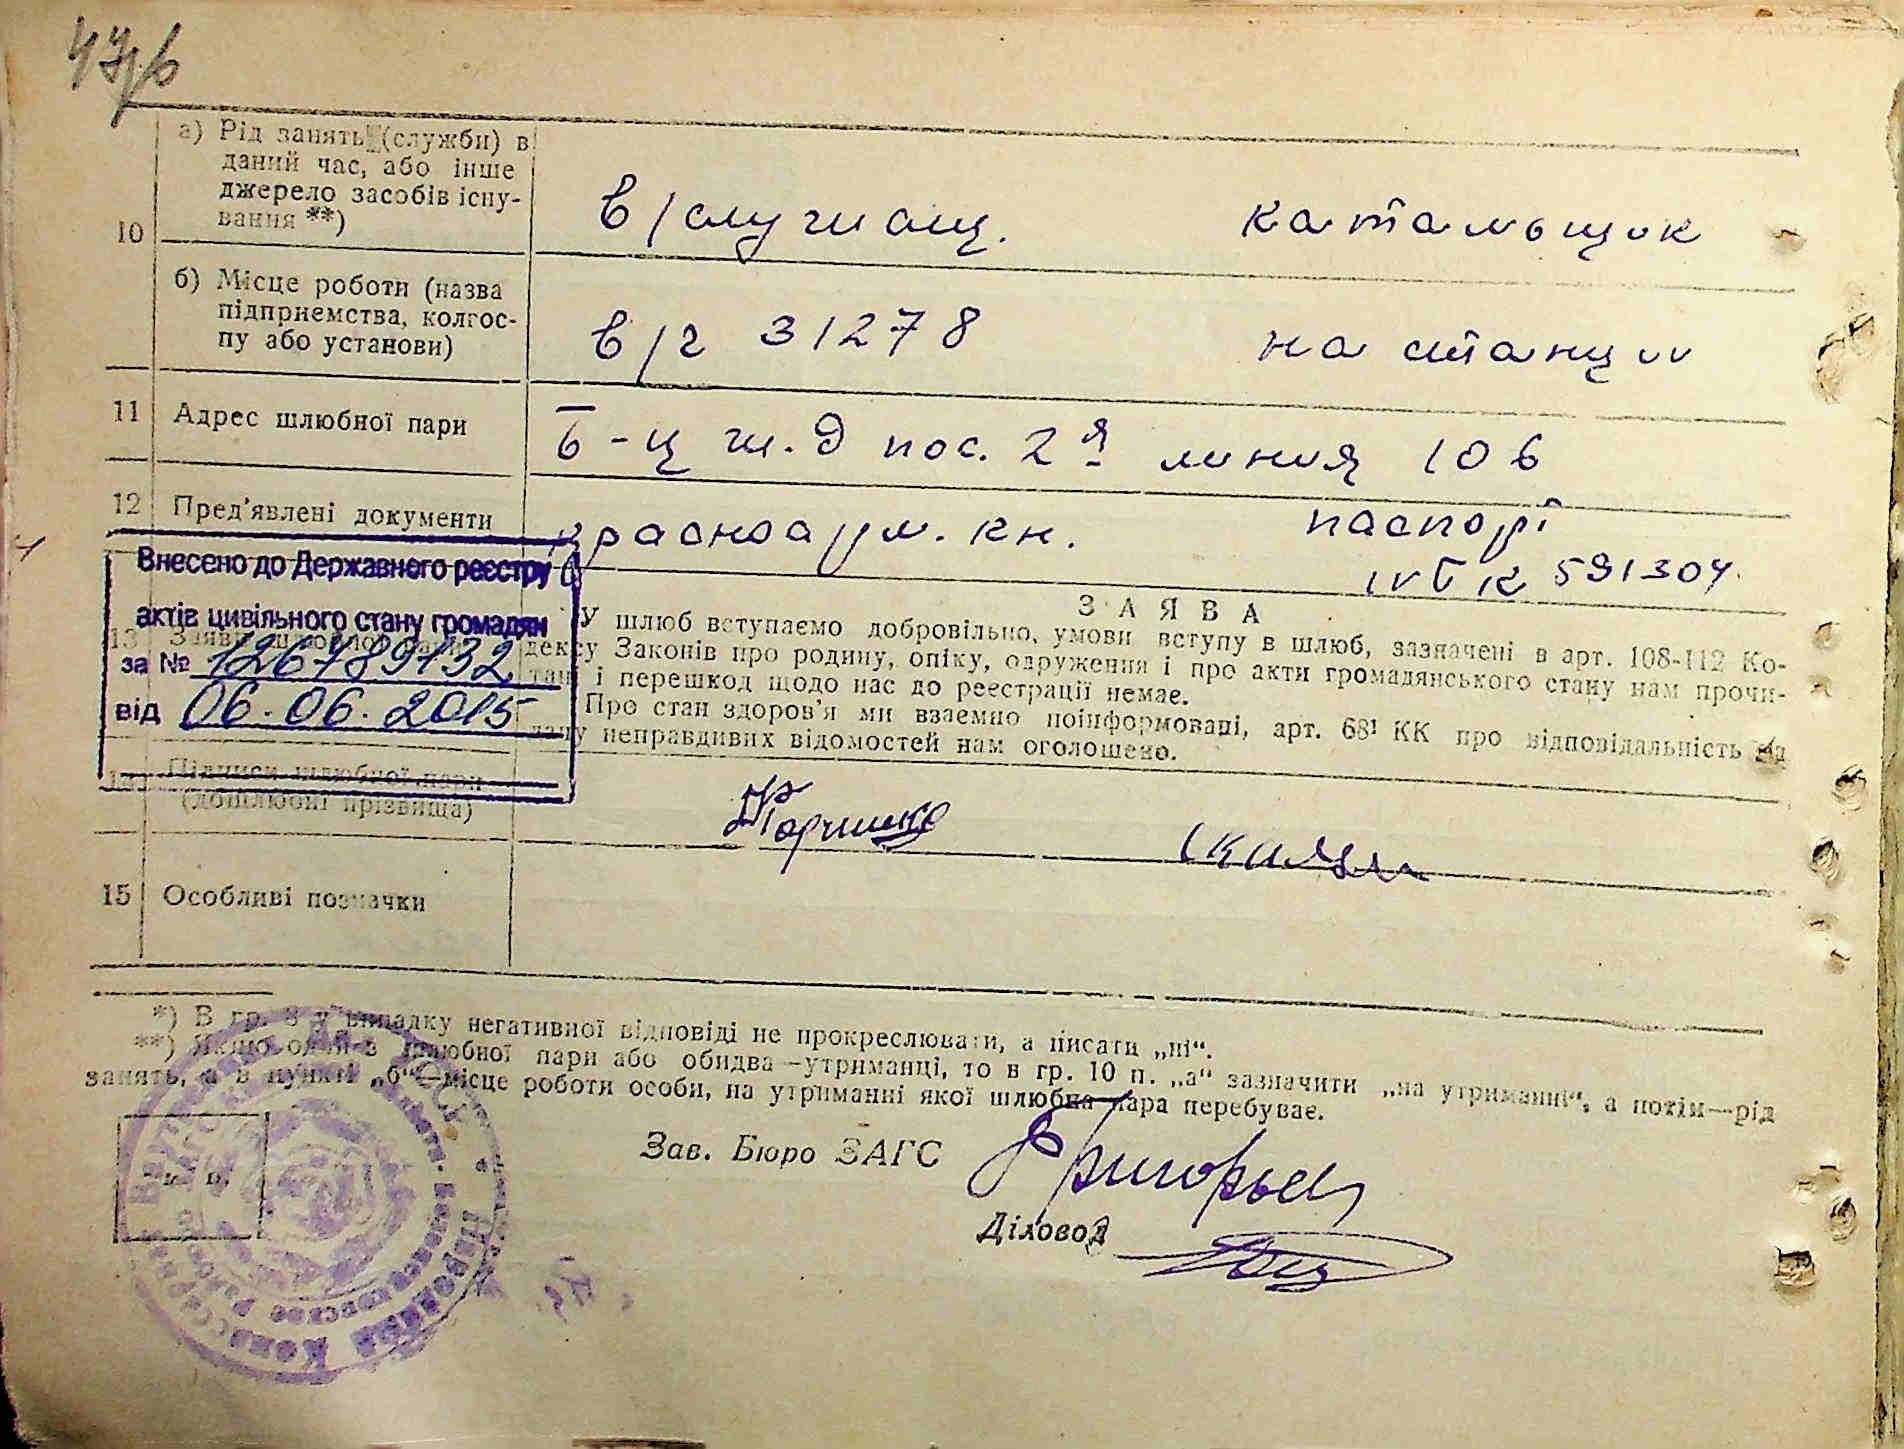 а) Рід занять (служби) в
даний час, або інше
джерело засобів існу-
вання **)
10
в/служащ. катальщик
б) Місце роботи (назва
підприємства, колгос-
пу або установи)
в/г 31278 на станции
11 Адрес шлюбної пари
Б-ц ж.д пос. 2я линия 106
12 Пред'явлені документи
красноарм. кн. паспорт
IVБК 591304.
Внесено до Державного реєстру
актів цивільного стану громадян
за № 126789132
від 06.06.2015
13
ЗАЯВА
У шлюб вступаємо добровільно, умови вступу в шлюб, зазначені в арт. 108-112 Ко-
дексу Законів про родину, опіку, одруження і про акти громадянського стану нам прочи-
тані і перешкод щодо нас до реєстрації немає.
Про стан здоров'я ми взаємно поінформовані, арт. 68¹ КК про відповідальність за
дачу неправдивих відомостей нам оголошено.
Підписи шлюбної пари
(дошлюбні прізвища)
15 Особливі позначки
*) В гр. 8 у випадку негативної відповіді не прокреслювати, а писати „ні“.
**) Якщо один з шлюбної пари або обидва—утриманці, то в гр. 10 п. „а“ зазначити „на утриманні“, а потім—рід
занять, а в пункті „б“—місце роботи особи, на утриманні якої шлюбна пара перебуває.
Зав. Бюро ЗАГС
Діловод